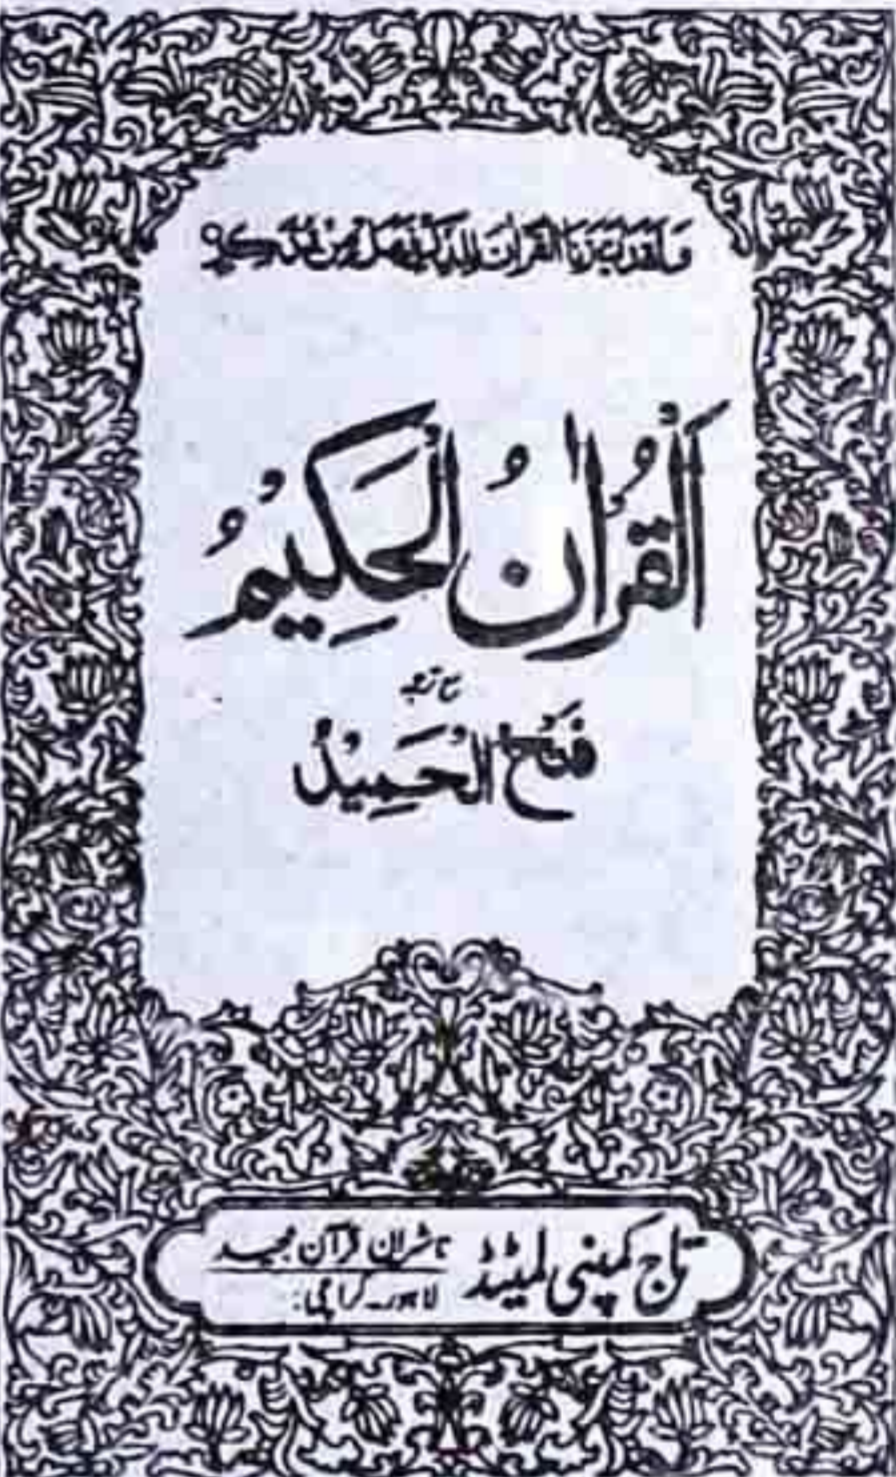 وَلَقَدْ يَسَّرْنَا الْقُرْاٰنَ لِلذِّكْرِ فَهَلْ مِنْ مُّدَّكِرٍ
اَلْقُرْاٰنُ الْحَكِيْمُ
مع ترجمہ
فَتْحُ الْحَمِيْدُ
تاج کمپنی لمیٹڈ
ناشران قرآن مجید
لاہور - کراچی: